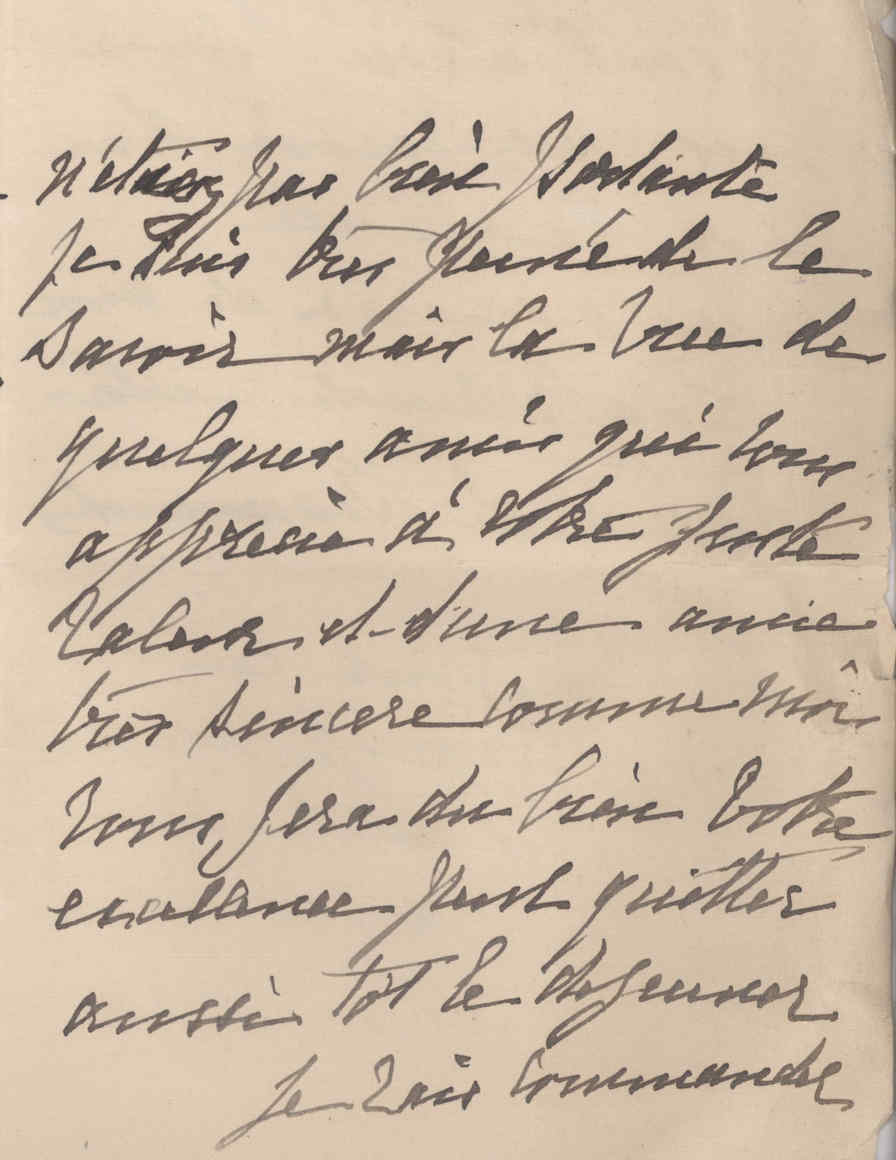 n'étiez pas bien portante
je suis très peinée de le
savoir mais la vue de
quelques amis qui vous
apprecie à votre juste
valeur et d'une amie
très sincere comme moi
vous fera du bien Votre
excellence peut quitter
aussi tôt le dejeuner
Je vais commander